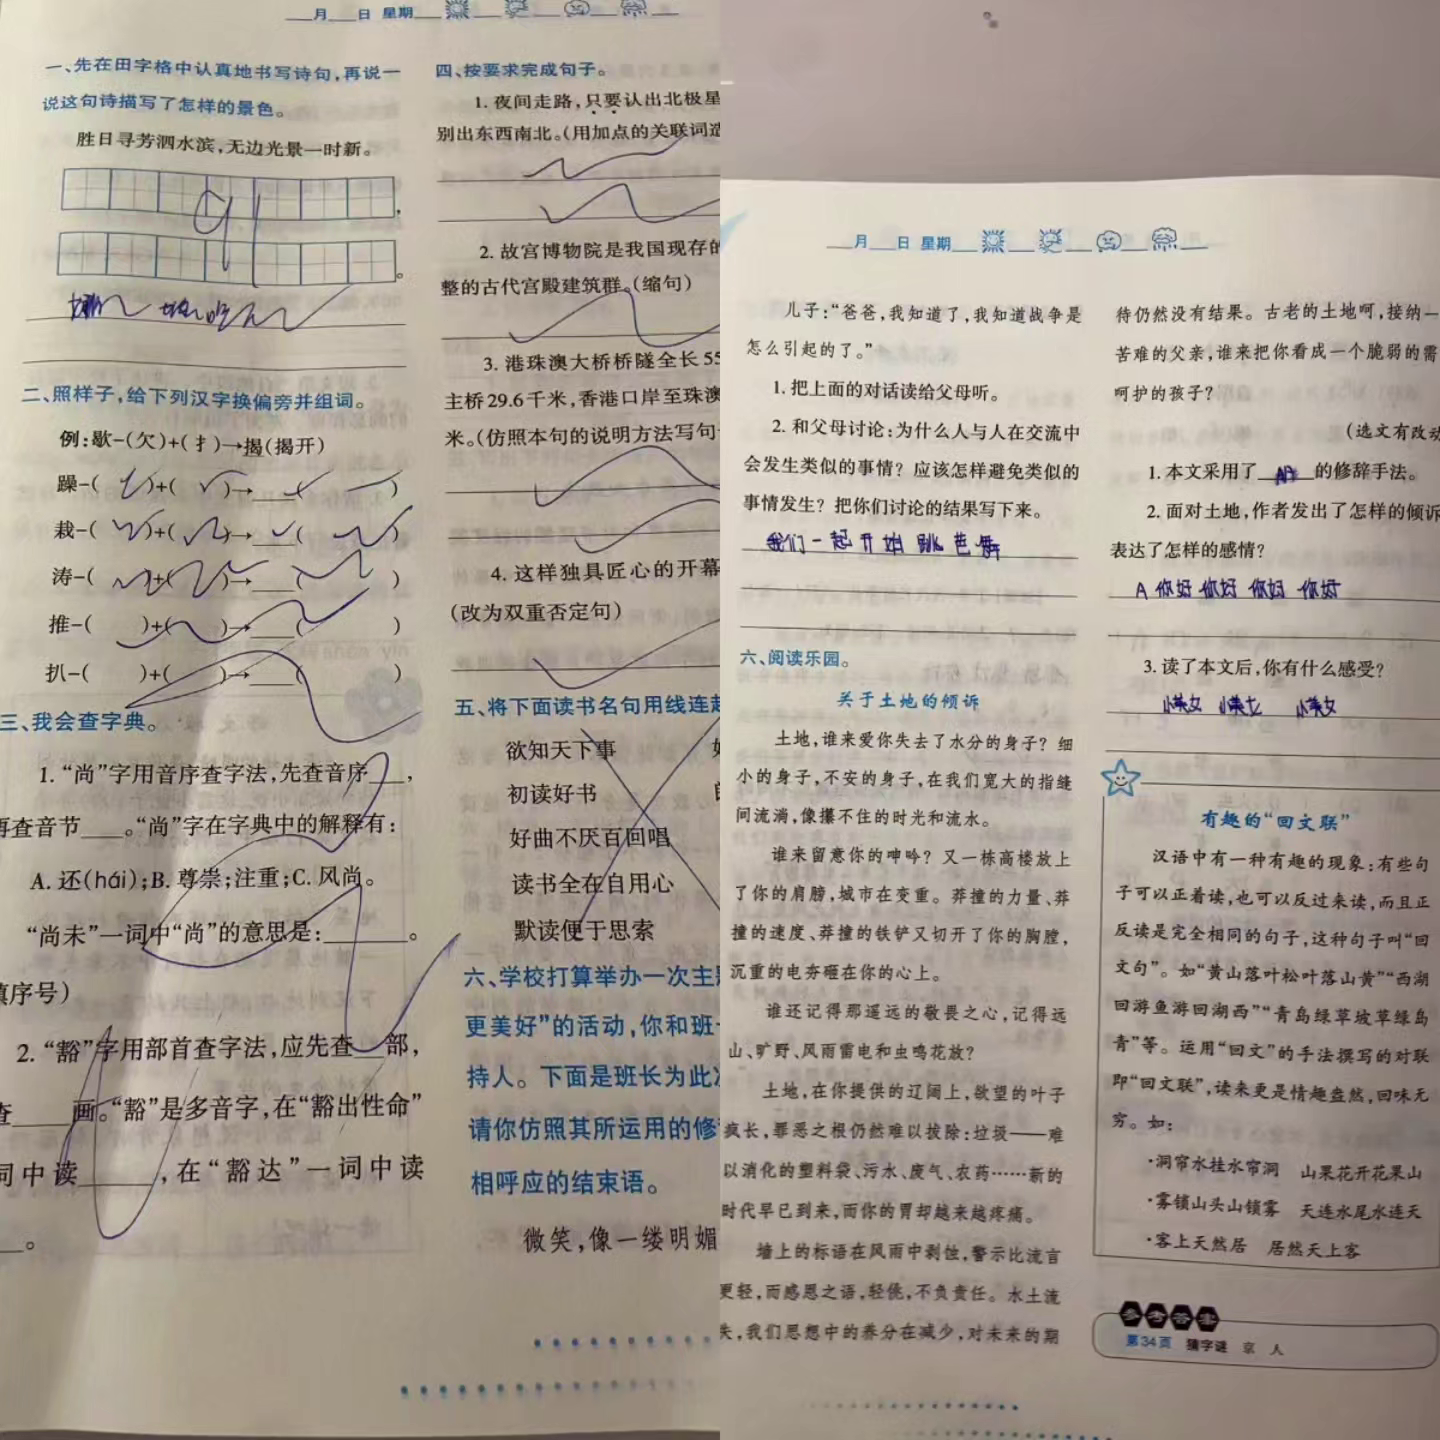 ___月___日 星期___ ___ ___ ___
一、先在田字格中认真地书写诗句,再说一
说这句诗描写了怎样的景色。
胜日寻芳泗水滨,无边光景一时新。
,
。
二、照样子,给下列汉字换偏旁并组词。
例:歇-(欠)+(扌)→揭(揭开)
躁-( )+( )→____( )
栽-( )+( )→____( )
涛-( )+( )→____( )
推-( )+( )→____( )
扒-( )+( )→____( )
三、我会查字典。
1.“尚”字用音序查字法,先查音序___,
再查音节___。“尚”字在字典中的解释有:
A.还(hái);B.尊崇;注重;C.风尚。
“尚未”一词中“尚”的意思是:______。
填序号)
2.“豁”字用部首查字法,应先查___部,
查____画。“豁”是多音字,在“豁出性命”
词中读______,在“豁达”一词中读
___。
四、按要求完成句子。
1.夜间走路,只要认出北极星
别出东西南北。(用加点的关联词造
2.故宫博物院是我国现存的
整的古代宫殿建筑群。(缩句)
3.港珠澳大桥桥隧全长55
主桥29.6千米,香港口岸至珠澳
米。(仿照本句的说明方法写句
4.这样独具匠心的开幕
(改为双重否定句)
五、将下面读书名句用线连起
欲知天下事
初读好书
好曲不厌百回唱
读书全在自用心
默读便于思索
六、学校打算举办一次主题
更美好”的活动,你和班
持人。下面是班长为此次
请你仿照其所运用的修
相呼应的结束语。
微笑,像一缕明媚
___月___日 星期___ ___ ___ ___
儿子:“爸爸,我知道了,我知道战争是
怎么引起的了。”
1.把上面的对话读给父母听。
2.和父母讨论:为什么人与人在交流中
会发生类似的事情?应该怎样避免类似的
事情发生?把你们讨论的结果写下来。
我们一起开始跳芭舞
六、阅读乐园。
关于土地的倾诉
土地,谁来爱你失去了水分的身子?细
小的身子,不安的身子,在我们宽大的指缝
间流淌,像攥不住的时光和流水。
谁来留意你的呻吟?又一栋高楼放上
了你的肩膀,城市在变重。莽撞的力量、莽
撞的速度、莽撞的铁铲又切开了你的胸膛,
沉重的电夯砸在你的心上。
谁还记得那遥远的敬畏之心,记得远
山、旷野、风雨雷电和虫鸣花放?
土地,在你提供的辽阔上,欲望的叶子
疯长,罪恶之根仍然难以拔除:垃圾——难
以消化的塑料袋、污水、废气、农药……新的
时代早已到来,而你的胃却越来越疼痛。
墙上的标语在风雨中剥蚀,警示比流言
更轻,而感恩之语,轻佻,不负责任。水土流
失,我们思想中的养分在减少,对未来的期
待仍然没有结果。古老的土地呵,接纳一
苦难的父亲,谁来把你看成一个脆弱的需
呵护的孩子?
(选文有改动
1.本文采用了____的修辞手法。
2.面对土地,作者发出了怎样的倾诉
表达了怎样的感情?
A 你好 你好 你好 你好
3.读了本文后,你有什么感受?
小美女 小美女 小美女
有趣的“回文联”
汉语中有一种有趣的现象:有些句
子可以正着读,也可以反过来读,而且正
反读是完全相同的句子,这种句子叫“回
文句”。如“黄山落叶松叶落山黄”“西湖
回游鱼游回湖西”“青岛绿草坡草绿岛
青”等。运用“回文”的手法撰写的对联
即“回文联”,读来更是情趣盎然,回味无
穷。如:
·洞帘水挂水帘洞 山果花开花果山
·雾锁山头山锁雾 天连水尾水连天
·客上天然居 居然天上客
参考答案
第34页 猜字谜 京 人